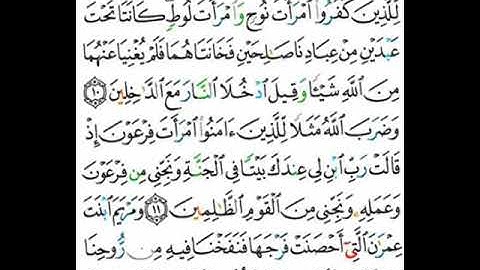 لِّلَّذِينَ كَفَرُواْ ٱمۡرَأَتَ نُوحٖ وَٱمۡرَأَتَ لُوطٖۖ كَانَتَا تَحۡتَ
عَبۡدَيۡنِ مِنۡ عِبَادِنَا صَٰلِحَيۡنِ فَخَانَتَاهُمَا فَلَمۡ يُغۡنِيَا عَنۡهُمَا
مِنَ ٱللَّهِ شَيۡـٔٗا وَقِيلَ ٱدۡخُلَا ٱلنَّارَ مَعَ ٱلدَّٰخِلِينَ ١٠
وَضَرَبَ ٱللَّهُ مَثَلٗا لِّلَّذِينَ ءَامَنُواْ ٱمۡرَأَتَ فِرۡعَوۡنَ إِذۡ
قَالَتۡ رَبِّ ٱبۡنِ لِي عِندَكَ بَيۡتٗا فِي ٱلۡجَنَّةِ وَنَجِّنِي مِن فِرۡعَوۡنَ
وَعَمَلِهِۦ وَنَجِّنِي مِنَ ٱلۡقَوۡمِ ٱلظَّٰلِمِينَ ١١ وَمَرۡيَمَ ٱبۡنَتَ
عِمۡرَٰنَ ٱلَّتِيٓ أَحۡصَنَتۡ فَرۡجَهَا فَنَفَخۡنَا فِيهِ مِن رُّوحِنَا